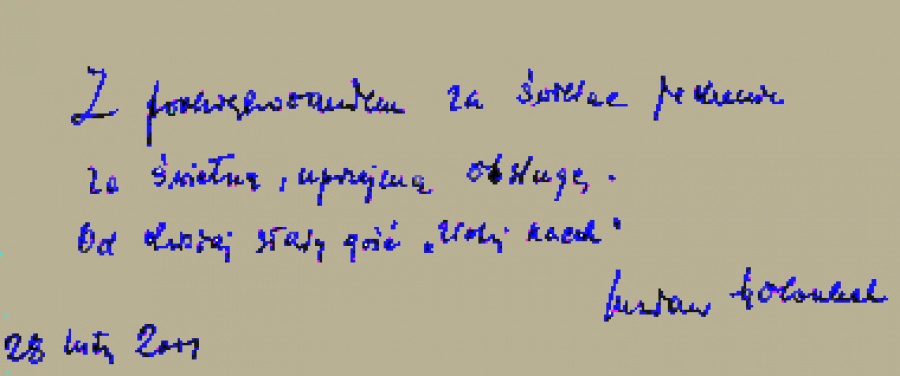 Z podziękowaniem za świetne jedzenie
za świetną, uprzejmą obsługę.
Od dzisiaj stały gość „Złotej
28 luty 2011